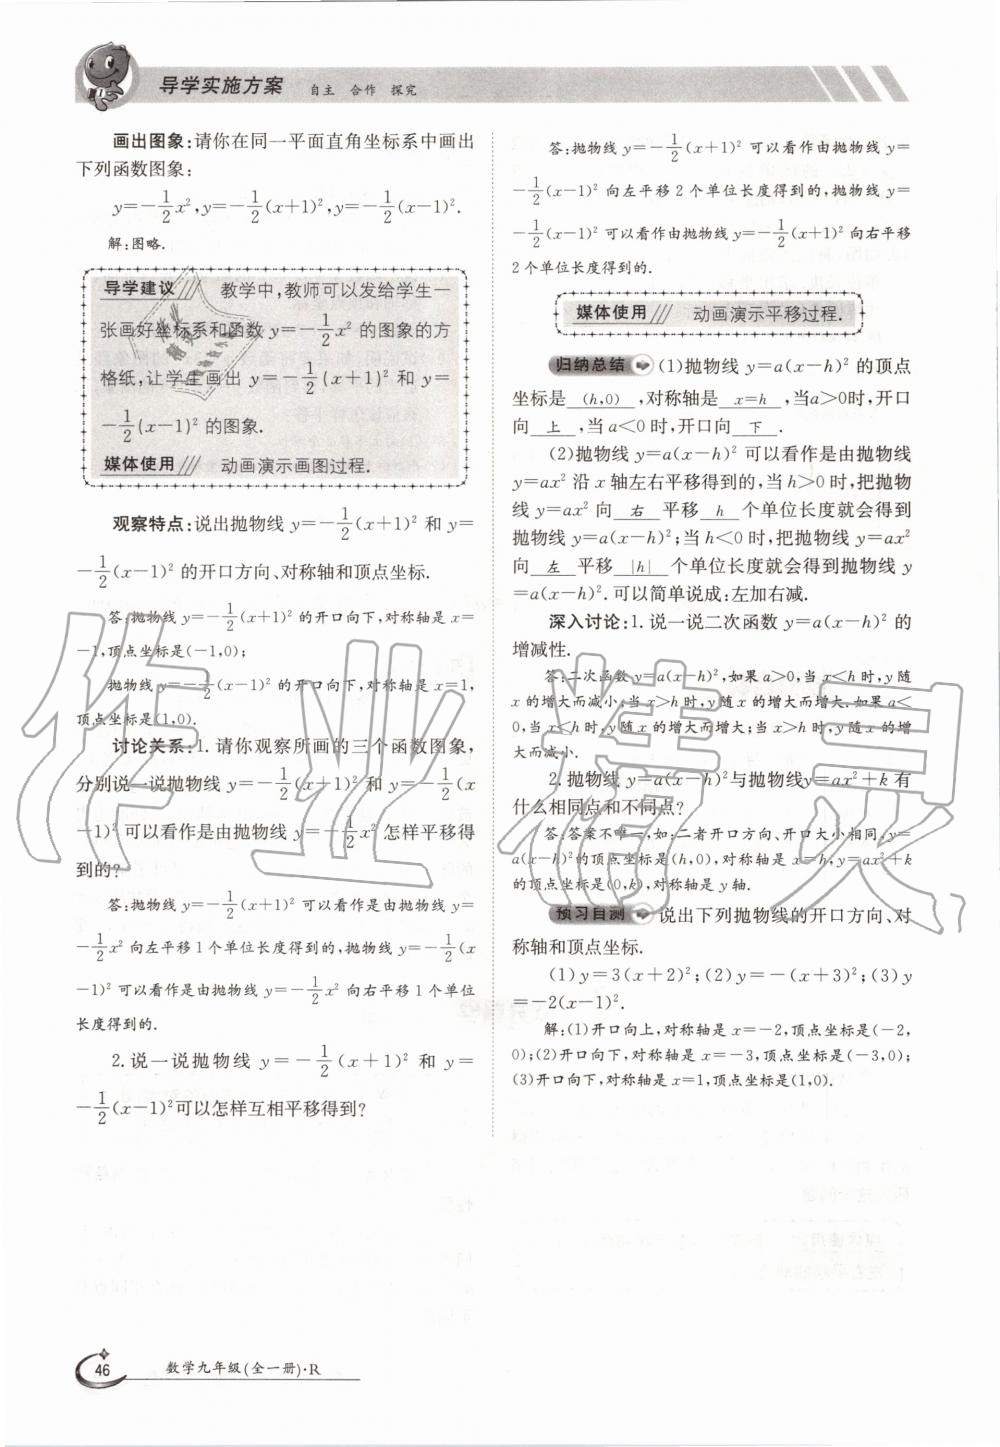 导学实施方案 自主 合作 探究
画出图象:请你在同一平面直角坐标系中画出
下列函数图象:
y=-\frac{1}{2}x²,y=-\frac{1}{2}(x+1)²,y=-\frac{1}{2}(x-1)².
解:图略.
导学建议/// 教学中,教师可以发给学生一
张画好坐标系和函数 y=-\frac{1}{2}x² 的图象的方
格纸,让学生画出 y=-\frac{1}{2}(x+1)² 和 y=
-\frac{1}{2}(x-1)² 的图象.
媒体使用/// 动画演示画图过程.
观察特点:说出抛物线 y=-\frac{1}{2}(x+1)² 和 y=
-\frac{1}{2}(x-1)² 的开口方向、对称轴和顶点坐标.
答:抛物线 y=-\frac{1}{2}(x+1)² 的开口向下,对称轴是 x=
-1,顶点坐标是(-1,0);
抛物线 y=-\frac{1}{2}(x-1)² 的开口向下,对称轴是 x=1,
顶点坐标是(1,0).
讨论关系:1. 请你观察所画的三个函数图象,
分别说一说抛物线 y=-\frac{1}{2}(x+1)² 和 y=-\frac{1}{2}(x
-1)² 可以看作是由抛物线 y=-\frac{1}{2}x² 怎样平移得
到的?
答:抛物线 y=-\frac{1}{2}(x+1)² 可以看作是由抛物线 y=
-\frac{1}{2}x² 向左平移 1 个单位长度得到的,抛物线 y=-\frac{1}{2}(x
-1)² 可以看作是由抛物线 y=-\frac{1}{2}x² 向右平移 1 个单位
长度得到的.
2. 说一说抛物线 y=-\frac{1}{2}(x+1)² 和 y=
-\frac{1}{2}(x-1)²可以怎样互相平移得到?
答:抛物线 y=-\frac{1}{2}(x+1)² 可以看作由抛物线 y=
-\frac{1}{2}(x-1)² 向左平移 2 个单位长度得到的,抛物线 y=
-\frac{1}{2}(x-1)² 可以看作由抛物线 y=-\frac{1}{2}(x+1)² 向右平移
2 个单位长度得到的.
媒体使用/// 动画演示平移过程.
归纳总结 (1)抛物线 y=a(x-h)² 的顶点
坐标是 (h,0) ,对称轴是 x=h ,当a>0时,开口
向 上 ,当 a<0 时,开口向 下 .
(2)抛物线 y=a(x-h)² 可以看作是由抛物线
y=ax² 沿 x 轴左右平移得到的,当 h>0 时,把抛物
线 y=ax² 向 右 平移 h 个单位长度就会得到
抛物线 y=a(x-h)²;当 h<0 时,把抛物线 y=ax²
向 左 平移 |h| 个单位长度就会得到抛物线 y
=a(x-h)².可以简单说成:左加右减.
深入讨论:1. 说一说二次函数 y=a(x-h)² 的
增减性.
答:二次函数 y=a(x-h)²,如果 a>0,当 x<h 时,y 随
x 的增大而减小;当 x>h 时,y 随 x 的增大而增大.如果 a<
0,当 x<h 时,y 随 x 的增大而增大;当 x>h 时,y 随 x 的增
大而减小.
2. 抛物线 y=a(x-h)²与抛物线y=ax²+k 有
什么相同点和不同点?
答:答案不唯一,如:二者开口方向、开口大小相同,y=
a(x-h)²的顶点坐标是(h,0),对称轴是 x=h,y=ax²+k
的顶点坐标是(0,k),对称轴是 y 轴.
预习自测 说出下列抛物线的开口方向、对
称轴和顶点坐标.
(1)y=3(x+2)²;(2)y=-(x+3)²;(3)y
=-2(x-1)².
解:(1)开口向上,对称轴是 x=-2,顶点坐标是(-2,
0);(2)开口向下,对称轴是 x=-3,顶点坐标是(-3,0);
(3)开口向下,对称轴是 x=1,顶点坐标是(1,0).
46 数学九年级(全一册)·R
作业精灵